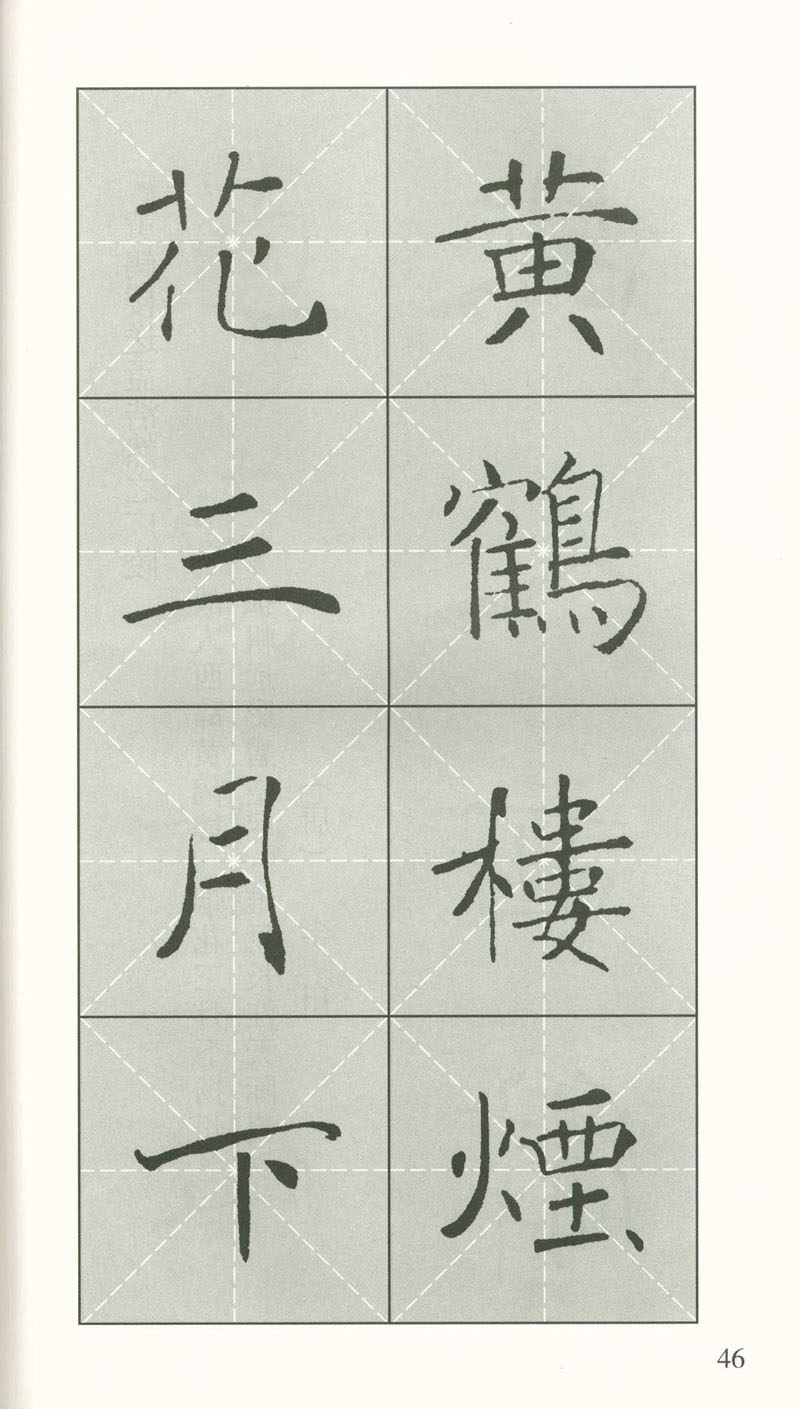 黄鶴樓煙
花三月下
46